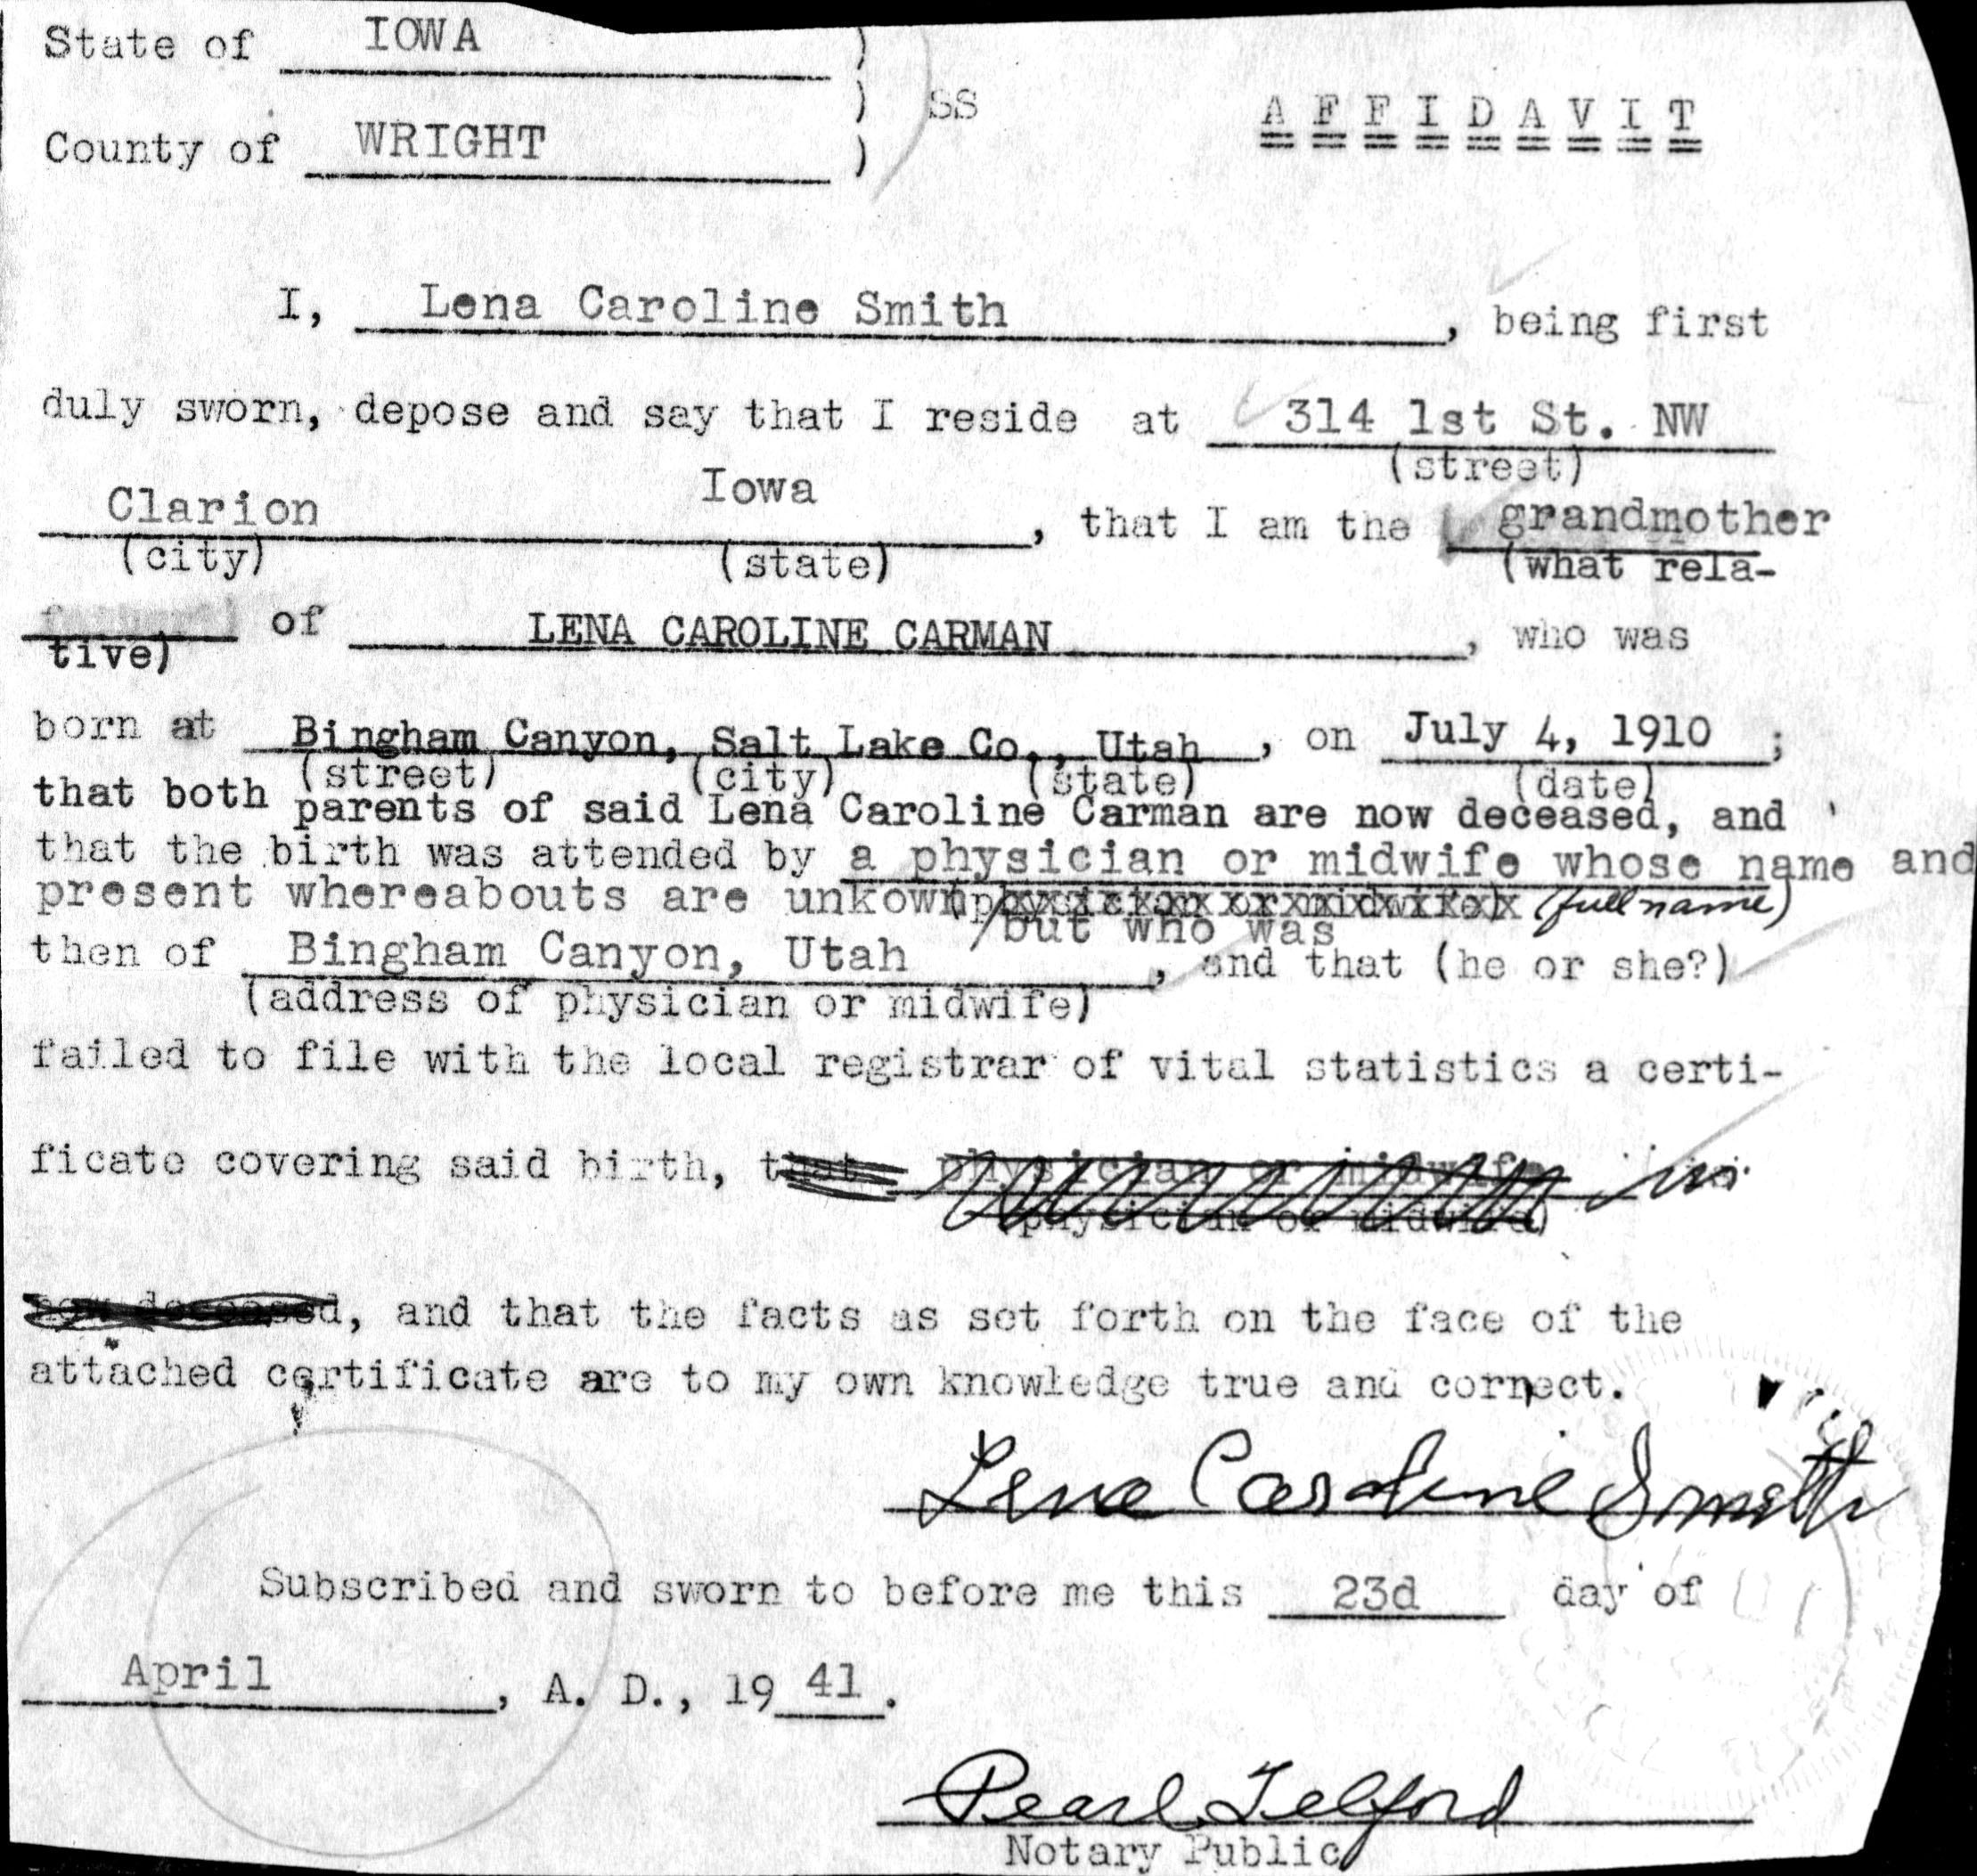 State of IOWA )
) SS A F F I D A V I T
County of WRIGHT )
I, Lena Caroline Smith, being first
duly sworn, depose and say that I reside at 314 1st St. NW
(street)
Clarion Iowa, that I am the grandmother
(city) (state) (what rela-
of LENA CAROLINE CARMAN, who was
tive)
born at Bingham Canyon, Salt Lake Co., Utah, on July 4, 1910;
(street) (city) (state) (date)
that both parents of said Lena Caroline Carman are now deceased, and
that the birth was attended by a physician or midwife whose name and
present whereabouts are unkown (physician or midwife) (full name)
/but who was
then of Bingham Canyon, Utah, and that (he or she?)
(address of physician or midwife)
failed to file with the local registrar of vital statistics a certi-
ficate covering said birth, that physician or midwife is
(physician or midwife)
now deceased, and that the facts as set forth on the face of the
attached certificate are to my own knowledge true and correct.
Lena Caroline Smith
Subscribed and sworn to before me this 23d day of
April, A. D., 1941.
Pearl Telford
Notary Public